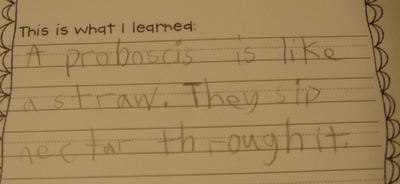 This is what I learned:
A proboscis is like
a straw. They sip
nectar through it.